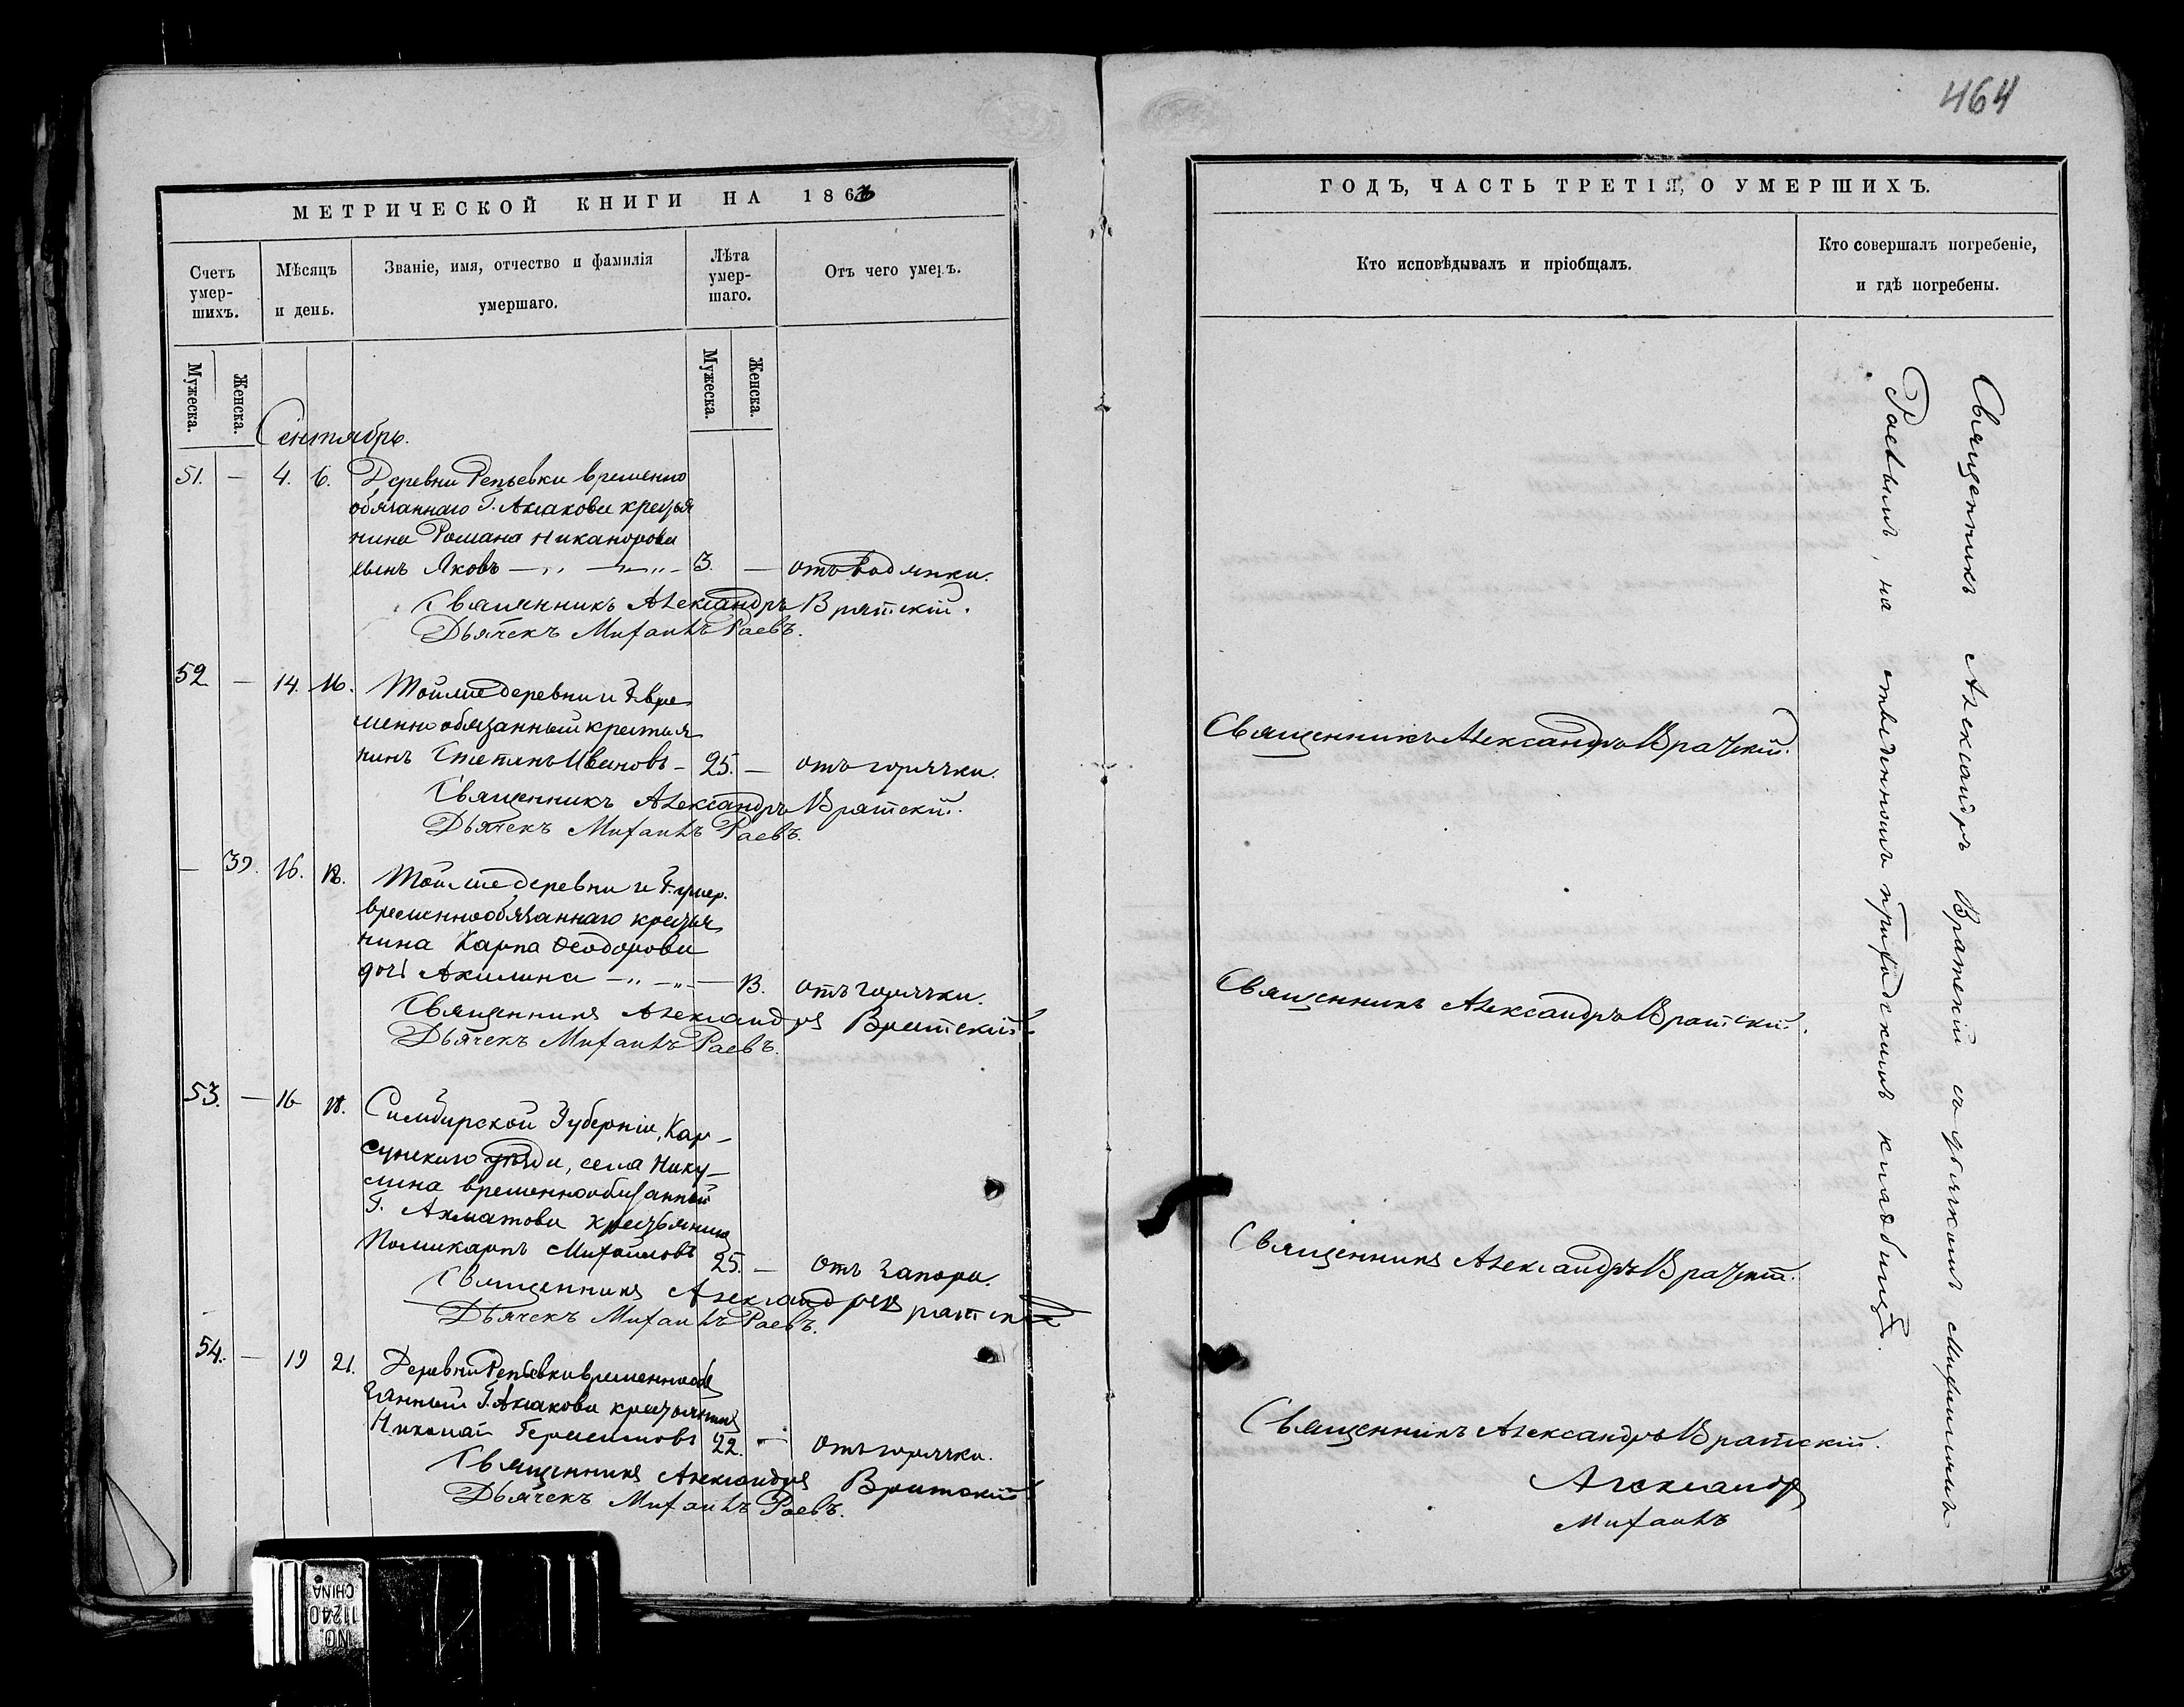 464
МЕТРИЧЕСКОЙ КНИГИ НА 1863
Счетъ умер-шихъ.
Мѣсяцъ и день.
Званіе, имя, отчество и фамилія умершаго.
Лѣта умер-шаго.
Отъ чего умеръ.
Мужеска.
Женска.
Мужеска.
Женска.
Сентябрь.
51. — 4. 6. Деревни Репьевки временно
обязаннаго Г. Аксакова крестья
нина Романа Никанорова
сынъ Яковъ — 3. — отъ водянки.
Священникъ Александръ Вратскій.
Дьячекъ Михаилъ Раевъ.
52 — 14. 16. Той же деревни и Г. вре
менно обязанный крестья
нинъ Степанъ Ивановъ — 25. — отъ горячки.
Священникъ Александръ Вратскій.
Дьячекъ Михаилъ Раевъ.
— 39. 16. 18. Той же деревни и Г.
временнообязаннаго крестья
нина Карпа Ѳеодорова
дочь Акилина — 13. отъ горячки.
Священникъ Александръ Вратскій.
Дьячекъ Михаилъ Раевъ.
53. — 16 18. Симбирской Губерніи, Кар-
сунскаго уѣзда, села Нику-
лина временнообязанный
Г. Ахматова крестьянинъ
Поликарпъ Михайловъ 25. — отъ запора.
Священникъ Александръ Вратскій
Дьячекъ Михаилъ Раевъ.
54. — 19 21. Деревни Репьевки временнообя
занный Г. Аксакова крестьянинъ
Николай Герасимовъ 22. — отъ горячки.
Священникъ Александръ Вратскій.
Дьячекъ Михаилъ Раевъ.
ГОДЪ, ЧАСТЬ ТРЕТІЯ, О УМЕРШИХЪ.
Кто исповѣдывалъ и пріобщалъ.
Кто совершалъ погребеніе,
и гдѣ погребены.
Священникъ Александръ Вратскій.
Священникъ Александръ Вратскій.
Священникъ Александръ Вратскій.
Священникъ Александръ Вратскій.
Александръ
Михаилъ
Священникъ Александръ Вратскій съ дьячкомъ Михаиломъ
Раевымъ, на отведенномъ приходскомъ кладбищѣ.
NO.
11240
CHINA